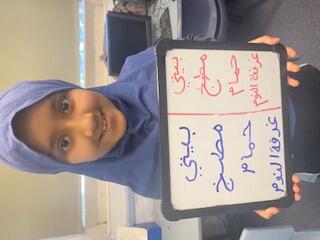 بيتي بيتي
مطبخ مطبخ
حمام حمام
غرفة النوم غرفة النوم